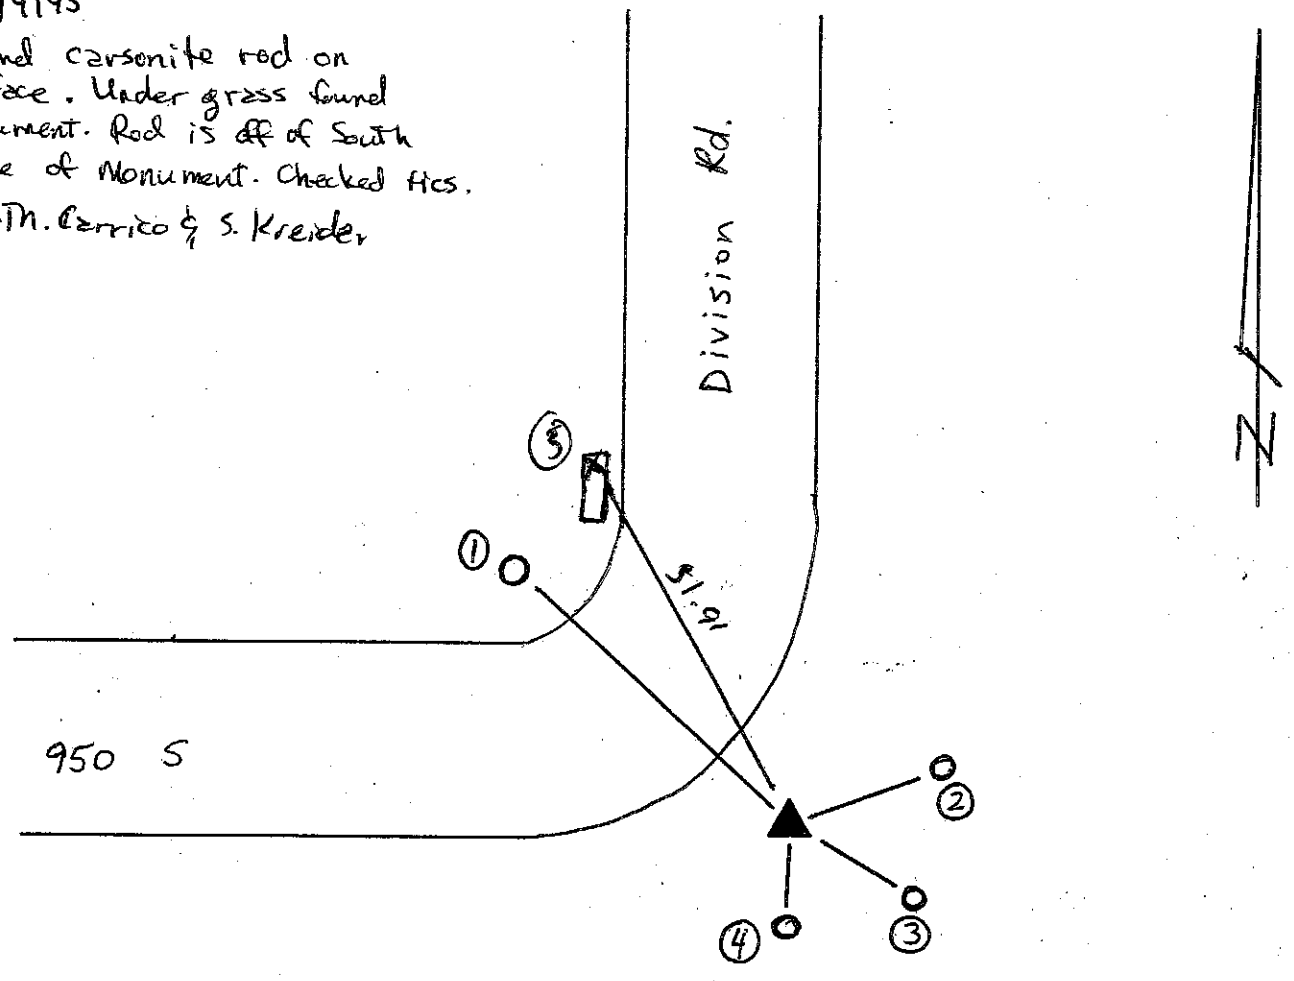 nd carsonite rod on
ace. Under grass found
ument. Rod is off of South
e of Monument. Checked ties.
Th. Carrico & S. Kreider
Division Rd.
1
51.91
950 S
2
3
4
N